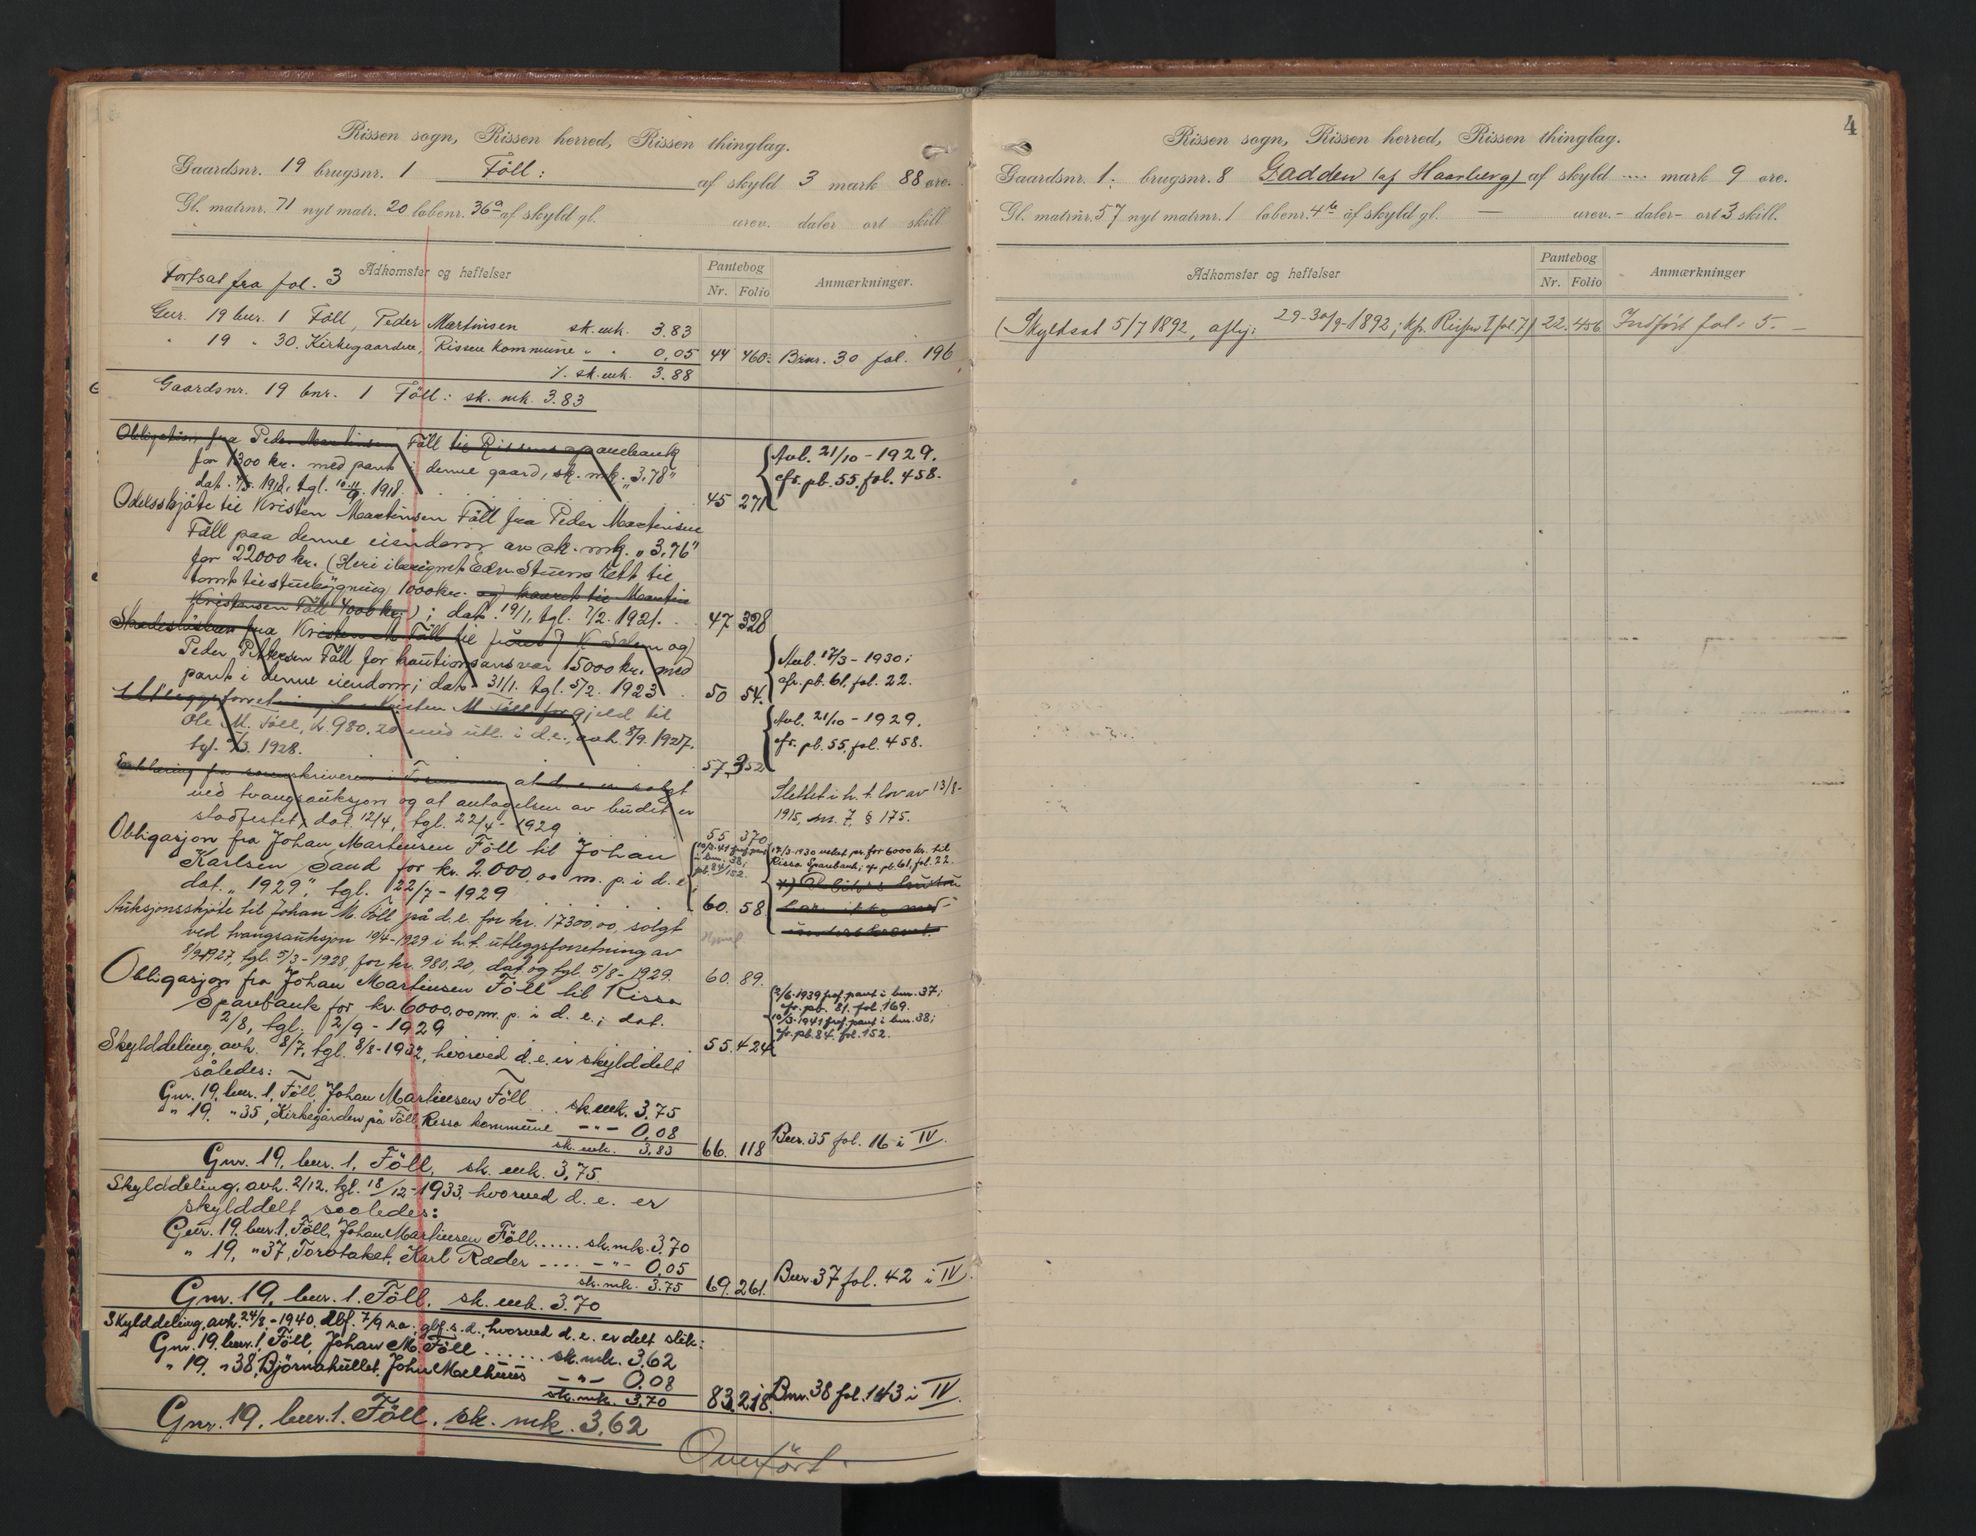 Rissen sogn, Rissen herred, Rissen thinglag.
Gaardsnr. 19 brugsnr. 1 Föll: af skyld 3 mark 88 øre.
Gl. matrnr. 71 nyt matr. 20 løbenr. 36a af skyld gl. urev. daler ort skill.
Fortsat fra fol. 3 Adkomster og heftelser Pantebog Nr. Folio Anmærkninger.
Gnr. 19 bnr. 1 Föll, Peder Martinsen sk. mk. 3.83
" 19 " 30. Kirkegaarden, Rissen kommune " " 0,05 44 460. Bnr. 30 fol. 196
sk. mk. 3.88
Gaardsnr. 19 bnr. 1 Föll: sk. mk. 3.83
Obligation fra Peder Martinsen Föll til Rissens sparebank
for 1300 kr. med pant i denne gaard, sk. mk. "3,78"
dat. 1918, tgl. 1918. 45 271 Avl. 21/10 - 1929. cfr. pb. 55. fol. 458.
Odelsskjöte til Kristen Martinsen Föll fra Peder Martinsen
Föll paa denne eiendom av sk. mk. "3,76"
for 22000 kr. (Heri iberegnet Edv. Stuens rett til
tomt til stuebygning 1000 kr. og kaaret til Martin
Kristensen Föll 4000 kr.); dat. 19/1, tgl. 7/2. 1921. 47 328
Skadeslösbrev fra Kristen M. Föll til K. Solem og
Peder Pedersen Föll for kautionsansvar 15000 kr. med
pant i denne eiendom; dat. 31/1. tgl. 5/2. 1923 50 54. Avl. 17/3 - 1930; cfr. pb. 61, fol. 22.
Utleggsforretning hos Kristen M. Föll for gjeld til
Ole M. Föll, kr. 980,20 med utl. i d.e., avh. 8/9. 1927.
tgl. 5/3. 1928. 57. 352 Avl. 21/10 - 1929. cfr. pb. 55, fol. 458.
Erklæring fra sorenskriveren i Fosen om at d.e. er solgt
ved tvangsauksjon og at antagelsen av budet er
stadfestet, dat. 12/4, tgl. 22/4 - 1929 55 370 Slettet i h. t. lov av 13/8- 1915, nr. 7, § 175.
Obligasjon fra Johan Martinsen Föll til Johan
Karlsen Sand for kr. 2.000,00 m. p. i d.e.
dat. "1929", tgl. 22/7 - 1929 60. 58
10/3-41 frof. pant i bnr. 38, pb. 84/152.
17/3-1930 veket pr. for 6000 kr. til
Rissa Sparebank; cfr. pb. 61, fol. 22.
x) Debitors hustru
har ikke med-
underskrevet.
Auksjonsskjöte til Johan M. Föll på d.e. for kr. 17300,00, solgt
ved tvangsauksjon 10/4-1929 i h. t. utleggsforretning av
8/9-1927, tgl. 5/3-1928, for kr. 980,20, dat. og tgl. 5/8-1929. 60. 89. Hjemmel
Obligasjon fra Johan Martinsen Föll til Rissa
Sparebank for kr. 6000,00 m. p. i d. e.; dat.
2/8, tgl. 2/9 - 1929 55. 424
2/6-1939 frof. pant i bnr. 37; cfr. pb. 81. fol. 169.
10/3-1941 frof. pant i bnr. 38; cfr. pb. 84. fol. 152.
Skylddeling, avh. 8/7, tgl. 8/8-1932, hvorved d.e. er skylddelt
således:
Gnr. 19, bnr. 1, Föll, Johan Martinsen Föll sk. mk. 3,75
" 19. " 35, Kirkegården på Föll, Rissa kommune - " - 0,08
sk. mk. 3,83 66. 118 Bnr. 35 fol. 16 i IV.
Gnr. 19, bnr. 1, Föll, sk. mk. 3,75
Skylddeling, avh. 2/12, tgl. 18/12-1933, hvorved d. e. er
skylddelt saaledes:
Gnr. 19, bnr. 1, Föll, Johan Martinsen Föll...... sk. mk. 3,70
" 19, " 37, Torotaket, Karl Ræder .... - " - 0,05
sk. mk. 3.75 69. 261. Bnr. 37 fol. 42 i IV.
Gnr. 19, bnr. 1. Föll, sk. mk. 3,70
Skylddeling, avh. 24/8-1940, dbf. 7/9 s.a., glf. s.d., hvorved d. e. er delt slik:
Gnr. 19, bnr. 1, Föll, Johan M. Föll ...... sk. mk. 3,62
" 19, " 38, Björnahullet, John Melhuus - " - 0,08
sk. mk. 3,70 83. 218. Bnr. 38 fol. 143 i IV.
Gnr. 19, bnr. 1. Föll, sk. mk. 3,62
Overfört.
4
Rissen sogn, Rissen herred, Rissen thinglag.
Gaardsnr. 1. brugsnr. 8 Gadden (af Haarberg) af skyld .... mark 9 øre.
Gl. matrnr. 57 nyt matrnr. 1 løbenr. 4 af skyld gl. — urev. - daler - ort 3 skill.
Adkomster og heftelser Pantebog Nr. Folio Anmærkninger
(Skyldsat 5/7 1892, aflij: 29-30/9-1892; kfr. Rissen I fol. 7) 22. 456 Indfört fol. 5. —